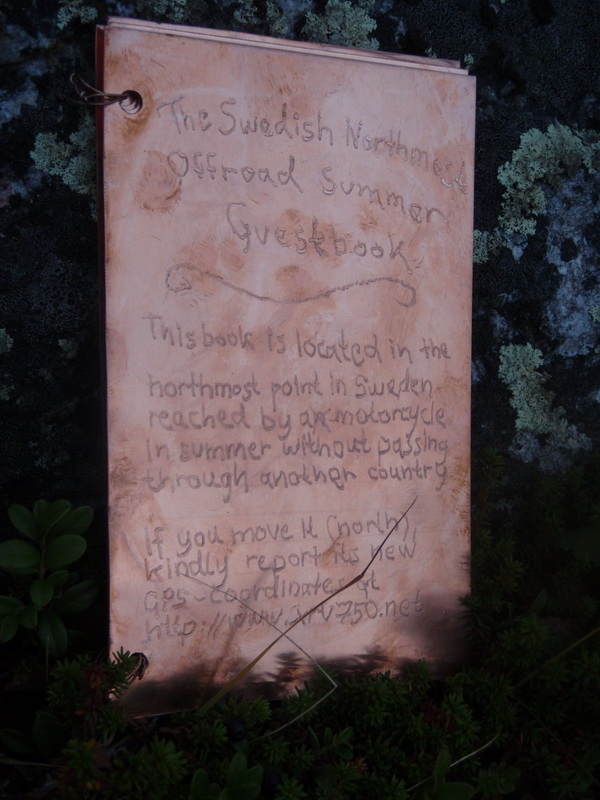 The Swedish Northmost
Offroad Summer
Guestbook
This book is located in the
northmost point in Sweden
reached by a motorcycle
in summer without passing
through another country
If you move it (north),
kindly report its new
GPS-coordinates at
http://www.xrv750.net